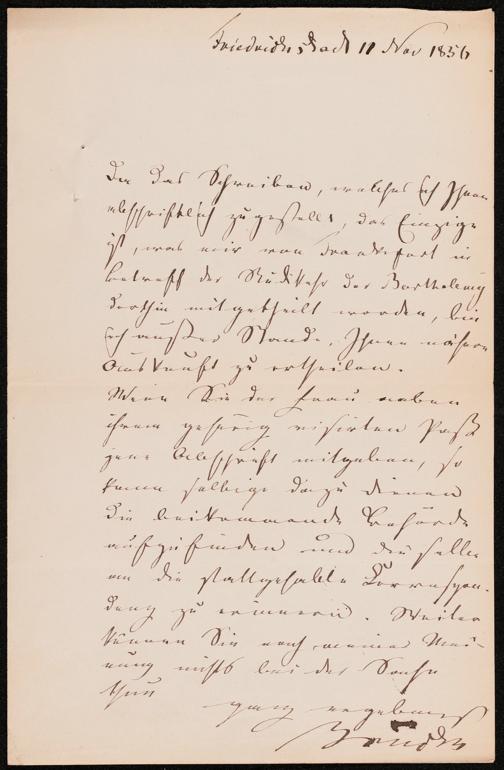 Friedrichstadt 11 Nov 1856
Da das Schreiben, welches ich Ihnen
abschriftlich zugestellt, das Einzige
ist, was mir von Frankfurt in
betreff der Rückkehr der Barthelmig
dorthin mitgetheilt worden, bin
ich außer Stande, Ihnen nähere
Auskunft zu ertheilen.
Wenn Sie der Frau neben
ihrem gehörig visirten Paß
jene Abschrift mitgeben, so
kann selbige dazu dienen
die beikommende Behörde
aufzufinden und dieselbe
an die stattgehabte Correspon-
denz zu erinnern. Weiter
können Sie nach meiner Mei-
nung nichts bei der Sache
thun
ganz ergebenst